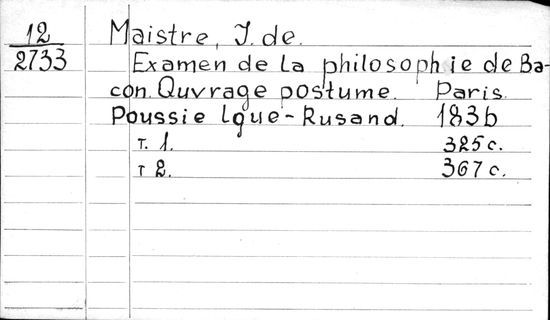 12
2733
Maistre, J. de.
Examen de la philosophie de Ba-
con. Quvrage postume. Paris.
Poussie lgue-Rusand. 1836
T. 1. 325 c.
T 2. 367 c.